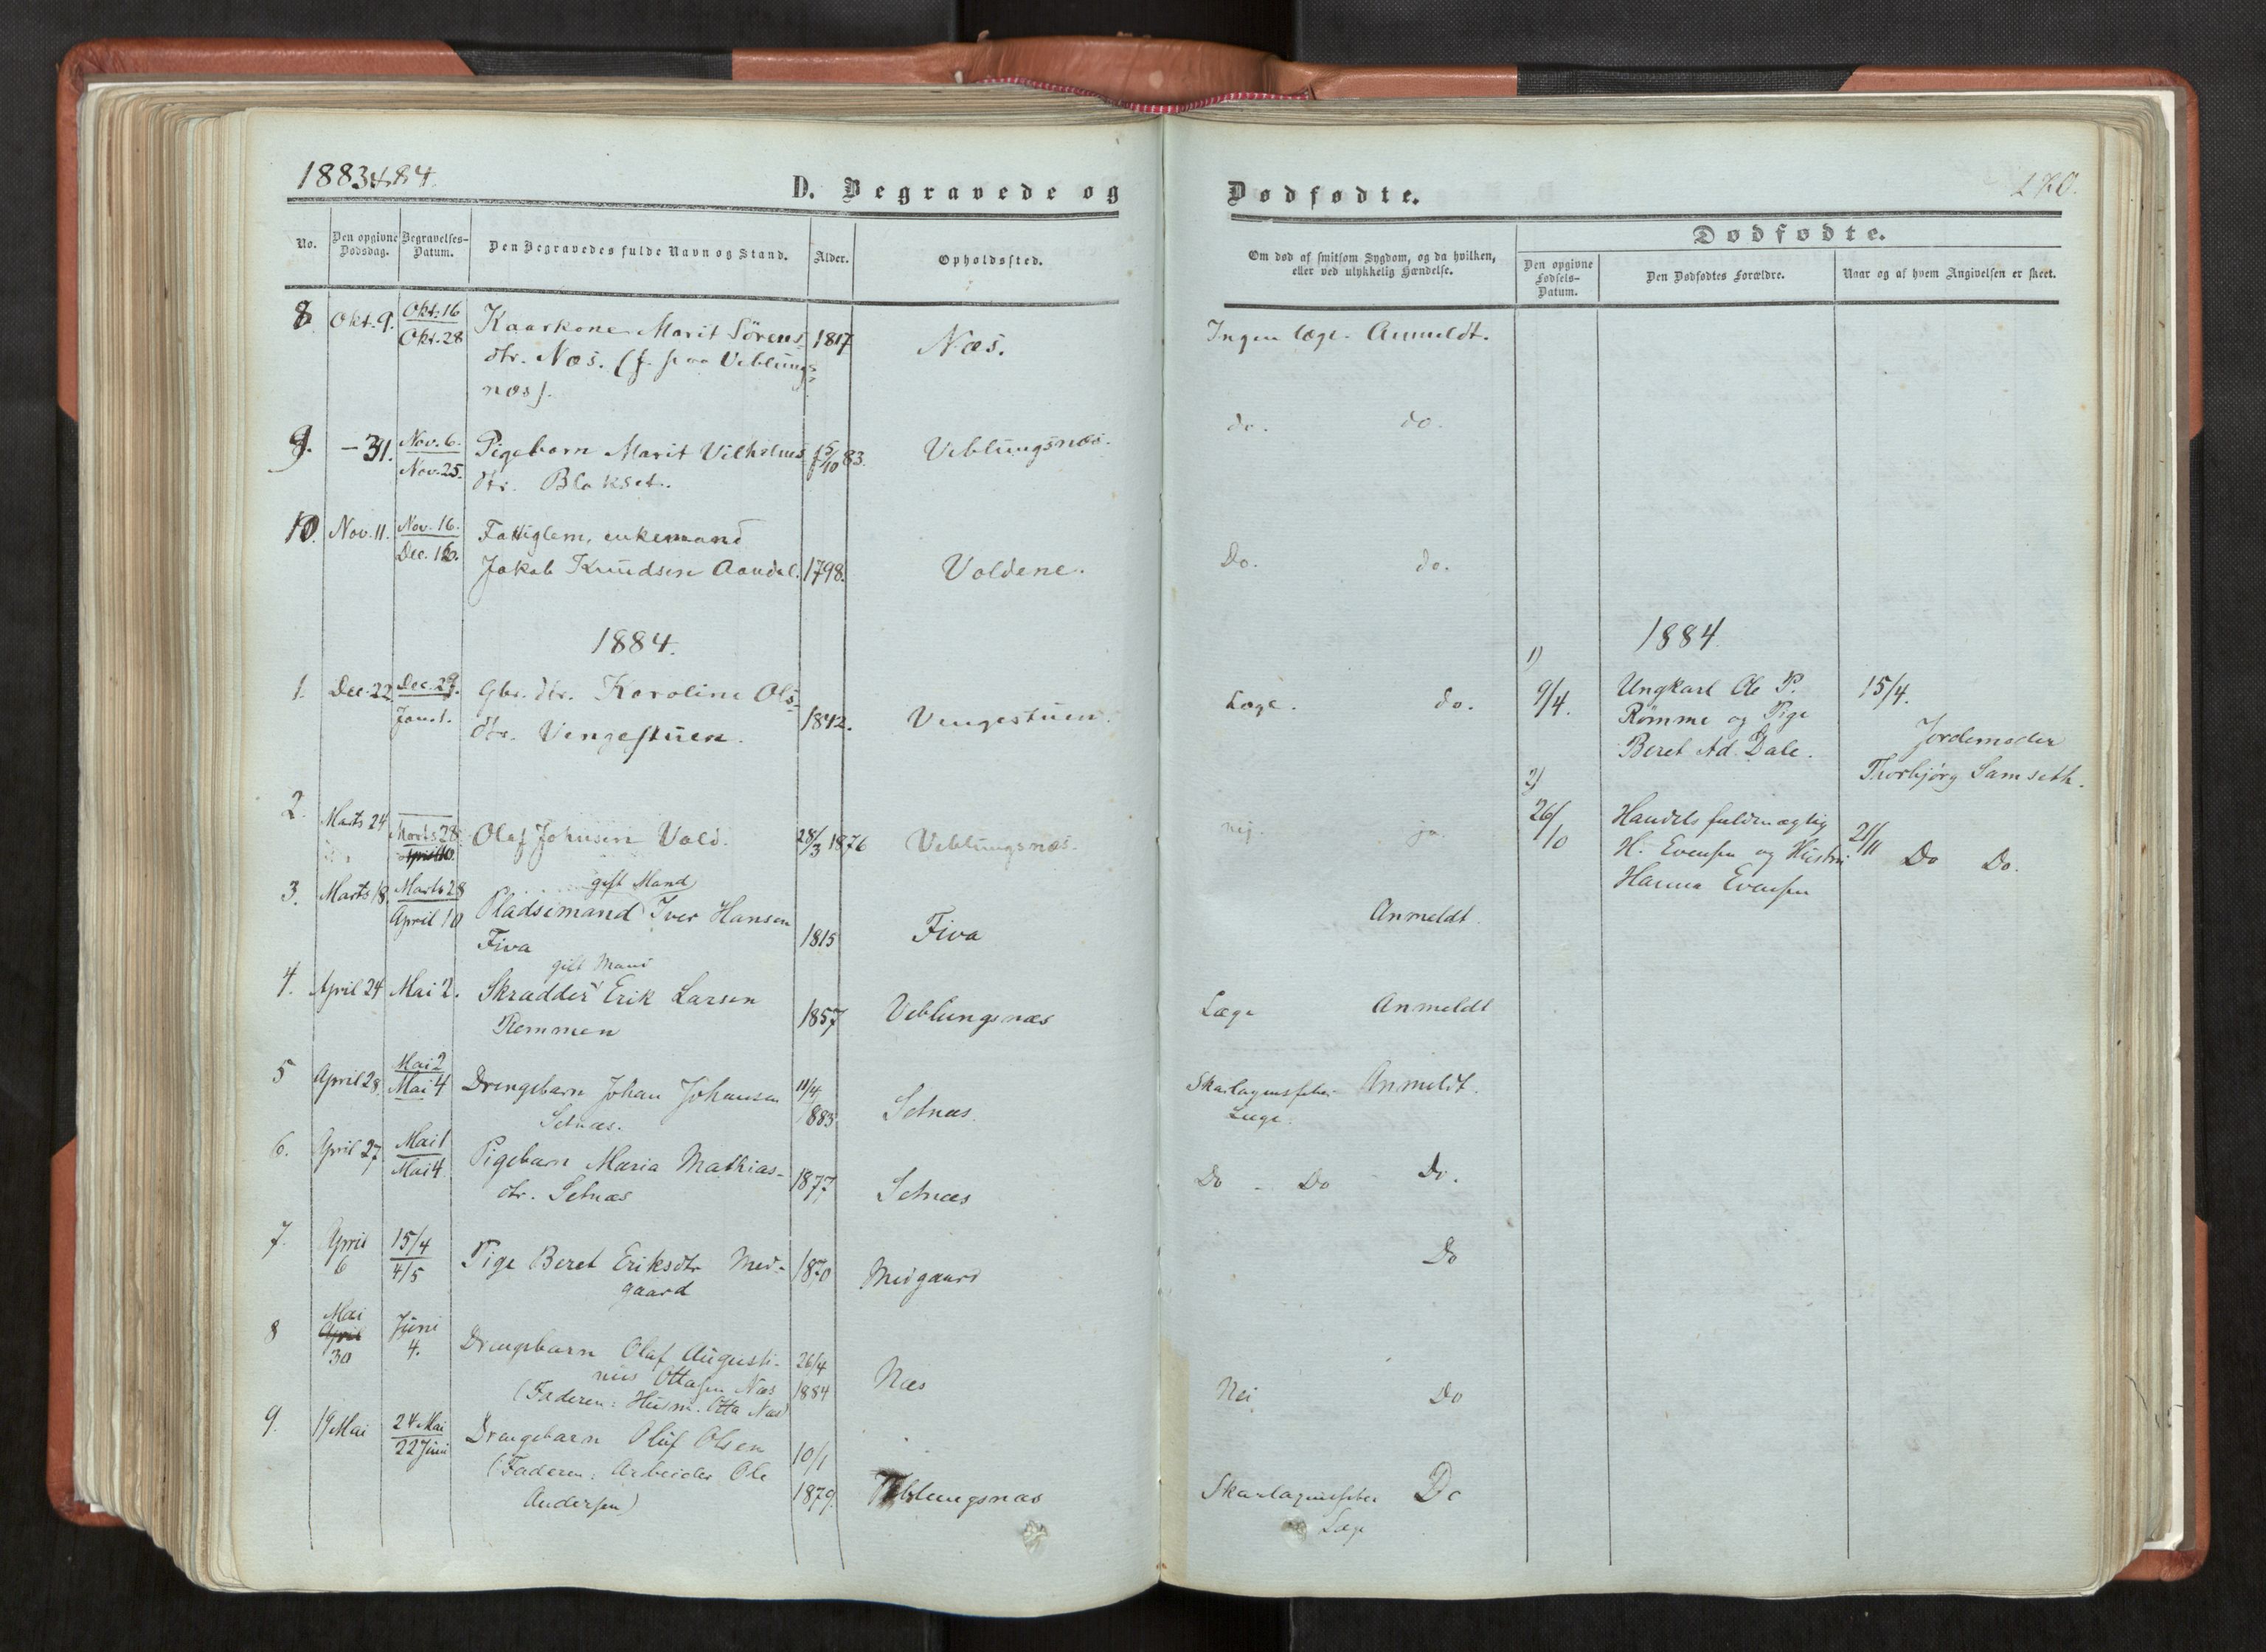 1883 & 84.
D. Begravede og
No.
Den opgivne Dødsdag.
Begravelses-Datum.
Den Begravedes fulde Navn og Stand.
Alder.
Opholdssted.
8. Okt. 9. Okt. 16 Kaarkone Marit Sörens- 1817 Næs.
Okt. 28 dtr. Næs. (f. paa Veblungs-
næs).
9. - 31. Nov. 6. Pigebarn Marit Vilhelms- 15/10 83. Veblungsnæs.
Nov. 25. dtr. Blakset.
10. Nov. 11. Nov. 16. Fattiglem, enkemand
Dec. 16. Jakob Knudsen Aandal. 1798. Voldene.
1884.
1. Dec. 22 Dec. 29. Gbr. dtr. Karoline Ols-
Jan. 1. dtr. Vengestuen. 1842. Vengestuen.
2. Marts 24 Marts 28 Olaf Johnsen Vold. 28/3 1876 Veblungsnæs.
April 10.
gift Mand
3. Marts 18. Marts 28 Pladsemand Iver Hansen
April 10 Fiva 1815 Fiva
gift Mand
4. April 24 Mai 2. Skrædder Erik Larsen
Remmen 1857 Veblungsnæs
5 April 28. Mai 2 Drengebarn Johan Johansen 11/4
Mai 4 Setnæs. 1883 Setnæs.
6. April 27 Mai 1 Pigebarn Maria Mathias-
Mai 4. dtr. Setnæs 1877 Setnæs
7. April 15/4 Pige Beret Eriksdtr Med- 1870 Medgaard
6 4/5 gaard
Mai
8 April Juni Drengebarn Olaf Augusti- 26/4
30 4. nius Ottasen Næs 1884 Næs
(Faderen: Husm. Otta Næs)
9. 19 Mai 24 Mai Drengebarn Oluf Olsen 10/1
22 Juni (Faderen: Arbeider Ole
Andersen) 1879. Veblungsnæs
Dødfødte.
170.
Om død af smitsom Sygdom, og da hvilken,
eller ved ulykkelig Hændelse.
Dødfødte.
Den opgivne Fødsels-Datum.
Den Dødfødtes Forældre.
Naar og af hvem Angivelsen er skeet.
Ingen læge. Anmeldt.
do. do.
Do. do.
Læge. do.
nej. ja.
Anmeldt.
Læge Anmeldt
Skarlagensfeber Anmeldt.
Læge.
Do - Do - Do.
Do
Nei Do
Skarlagensfeber Do
Læge
1884
1)
9/4. Ungkarl Ole P. 15/4.
Rømme og Pige Jordemoder
Beret Ad. Dale. Thorbjørg Samseth.
2)
26/10 Handelsfuldmægtig 21/11
H. Evensen og Hustru Do Do.
Hanna Evensen